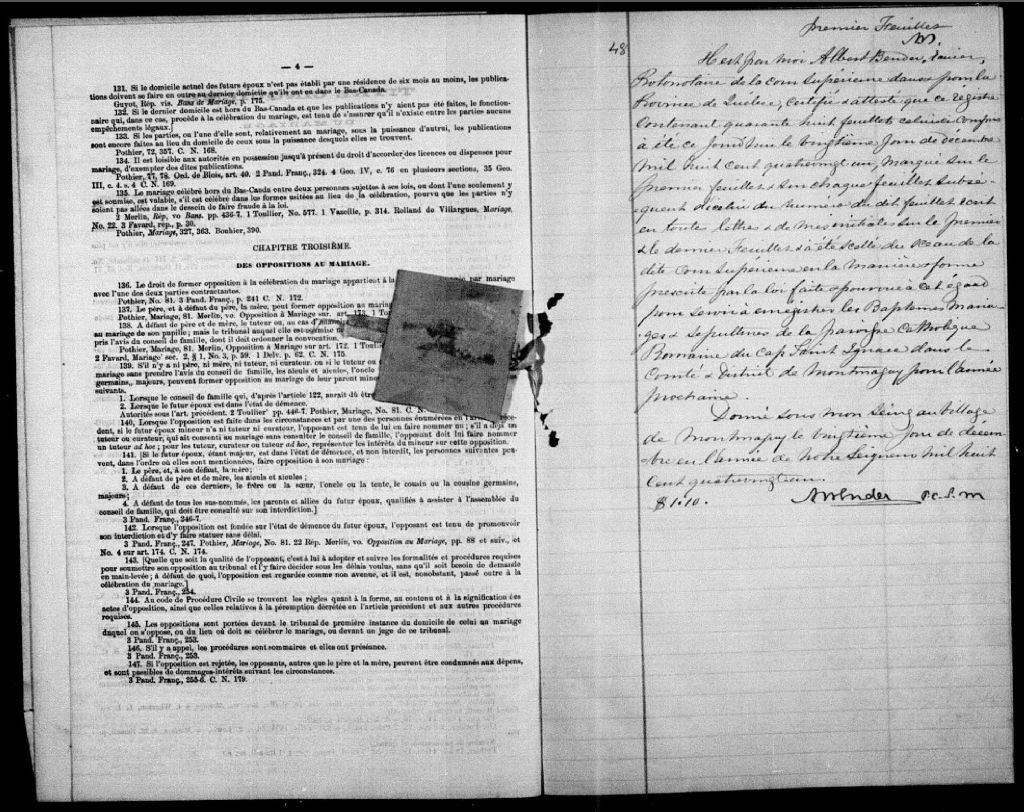 — 4 —
131. Si le domicile actuel des futurs époux n'est pas établi par une résidence de six mois au moins, les publica-
tions doivent se faire en outre au dernier domicile qu'ils ont eu dans le Bas-Canada.
Guyot, Rép. vis. Bans de Mariage, p. 175.
132. Si le dernier domicile est hors du Bas-Canada et que les publications n'y aient pas été faites, le fonction-
naire qui, dans ce cas, procède à la célébration du mariage, est tenu de s'assurer qu'il n'existe entre les parties aucuns
empêchements légaux.
133. Si les parties, ou l'une d'elle sont, relativement au mariage, sous la puissance d'autrui, les publications
sont encore faites au lieu du domicile de ceux sous la puissance desquels elles se trouvent.
Pothier, 72, 357. C. N. 168.
134. Il est loisible aux autorités en possession jusqu'à présent du droit d'accorder des licences ou dispenses pour
mariage, d'exempter des dites publications.
Pothier, 77, 78. Ord. de Blois, art. 40. 2 Pand. Franç., 324. 4 Geo. IV, c. 76 en plusieurs sections, 35 Geo.
III, c. 4. s. 4 C. N. 169.
135. Le mariage célébré hors du Bas-Canda entre deux personnes sujettes à ses lois, ou dont l'une seulement y
est soumise, est valable, s'il est célébré dans les formes usitées au lieu de la célébration, pourvu que les parties n'y
soient pas allées dans le dessein de faire fraude à la loi.
2 Merlin, Rép, vo Bans. pp. 436-7. 1 Toullier, No. 577. 1 Vazeille, p. 314. Rolland de Villargues, Mariage,
No. 22. 3 Favard, rép., p. 30.
Pothier, Mariage, 327, 363. Bouhier, 390.
CHAPITRE TROISIÈME.
DES OPPOSITIONS AU MARIAGE.
136. Le droit de former opposition à la célébration du mariage appartient à la par mariage
avec l'une des deux parties contractantes.
Pothier, No. 81. 3 Pand. Franç., p. 241 C. N. 172.
137. Le père, et à défaut du père, la mère, peut former opposition au mariag
Pothier, Mariage, 81. Merlin, vo. Opposition à Mariage sur. art. 173. 1 Tou
138. A défaut de père et de mère, le tuteur ou, au cas d'
au mariage de son pupille; mais le tribunal auquel elle est soumise
pris l'avis du conseil de famille, dont il doit ordonner la convocation.
Pothier, Mariage, 81. Merlin, Opposition à Mariage sur art. 172. 1 Toull
2 Favard, Mariage' sec. 2, § 1, No. 3, p. 59. 1 Delv. p. 62. C. N. 175.
139. S'il n'y a ni père, ni mère, ni tuteur, ni curateur. ou si le tuteur ou
mariage sans prendre l'avis du conseil de famille, les aieuls et aieules, l'oncle
germains, majeurs, peuvent former opposition au mariage de leur parent mine
suivants.
1. Lorsque le conseil de famille qui, d'après l'article 122, aurait dû être
2. Lorsque le futur époux est dans l'état de démence.
Autorités sous l'art. précédent. 2 Toullier' pp. 446-7. Pothier, Mariage, No. 81. C. N.
140. Lorsque l'opposition est faite dans les circonstances et par une des personnes énumérées en l'article précé-
dent, si le futur époux mineur n'a ni tuteur ni curateur, l'opposant est tenu de lui en faire nommer un; s'il a déjà un
tuteur ou curateur, qui ait consenti au mariage sans consulter le conseil de famille, l'opposant doit lui faire nommer
un tuteur ad hoc; pour les tuteur, curateur ou tuteur ad hoc, représenter les intérêts du mineur sur cette opposition.
141. [Si le futur époux, étant majeur, est dans l'état de démence, et non interdit, les personnes suivantes peu-
vent, dans l'ordre où elles sont mentionnées, faire opposition à son mariage:
1. Le père, et, à son défaut, la mère;
2. A défaut de père et de mère, les aieuls et aieules;
3. A défaut de ces derniers, le frère ou la sœur, l'oncle ou la tante, le cousin ou la cousine germains,
majeurs;
4. A défaut de tous les sus-nommés, les parents et alliés du futur époux, qualifiés à assister à l'assemblée du
conseil de famille, qui doit être consulté sur son interdiction.]
3 Pand. Franç., 246-7.
142. Lorsque l'opposition est fondée sur l'état de démence du futur époux, l'opposant est tenu de promouvoir
son interdiction et d'y faire statuer sans délai.
3 Pand. Franç., 247. Pothier, Mariage, No. 81. 22 Rép. Merlin, vo. Opposition au Mariage, pp. 88 et suiv., et
No. 4 sur art. 174. C. N. 174.
143. [Quelle que soit la qualité de l'opposant, c'est à lui à adopter et suivre les formalités et procédures requises
pour soumettre son opposition au tribunal et l'y faire décider sous les délais voulus, sans qu'il soit besoin de demande
en main-levée; à défaut de quoi, l'opposition est regardée comme non avenue, et il est, nonobstant, passé outre à la
célébration du mariage.]
3 Pand. Franç., 254.
144. Au code de Procédure Civile se trouvent les règles quant à la forme, au contenu et à la signification des
actes d'opposition, ainsi que celles relatives à la péremption décrétée en l'article précédent et aux autres procédures
requises.
145. Les oppositions sont portées devant le tribunal de première instance du domicile de celui au mariage
duquel on s'oppose, ou du lieu où doit se célébrer le mariage, ou devant un juge de ce tribunal.
3 Pand. Franç., 253.
146. S'il y a appel, les procédures sont sommaires et elles ont préséance.
3 Pand. Franç., 253.
147. Si l'opposition est rejetée, les opposants, autres que le père et la mère, peuvent être condamnés aux dépens,
et sont passibles de dommages-intérêts suivant les circonstances.
3 Pand. Franç., 255-6. C. N. 179.
48
premier Feuillet
AB.
par moi Albert Bender, Ecuier,
Protonotaire de la cour Supérieure dans & pour la
Province de Québec, certifié & attesté que ce registre
contenant quarante huit feuillets
a été ce jourd'hui le vingtième jour de décembre
mil huit cent quatrevingt un, marqué sur le
premier feuillet & sur chaque feuillet subsé-
quent du numéro du dit feuillet écrit
en toute lettres & de mes initiales sur le premier
& le dernier Feuillet & a été scellé du sceau de la
dite cour Supérieure en la manière & forme
prescrite par la loi faite & pourvue à cet égard
pour servir à enregistrer les Baptemes Maria-
ges & Sepultures de la paroisse Catholique
Romaine du Cap Saint Ignace dans le
Comté & District de Montmagny pour l'année
prochaine.
Donné sous mon Seing au village
de Montmagny le vingtième jour de décem
bre en l'année de Notre Seigneur mil huit
Cent quatrevingt un.
$1.10. ABender P.C.S.M